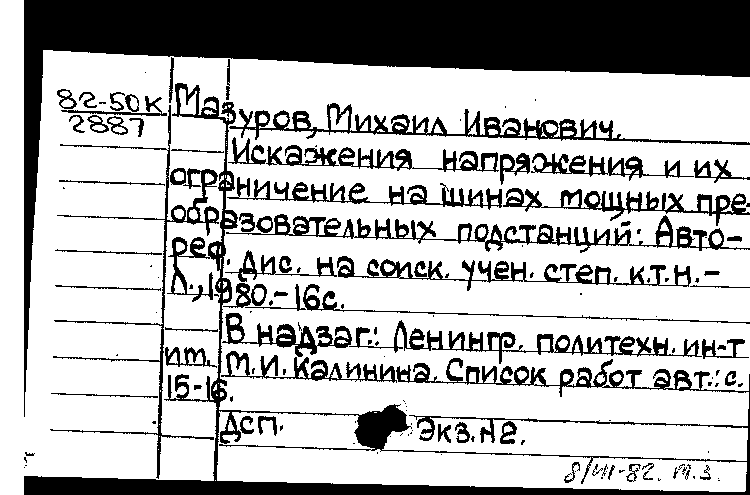 82-50к
2887
Мазуров, Михаил Иванович.
Искажения напряжения и их
ограничение на шинах мощных пре-
образовательных подстанций: Авто-
реф. дис. на соиск. учен. степ. к.т.н.-
Л., 1980.-16с.
В надзаг.: Ленингр. политехн. ин-т
им. М.И. Калинина. Список работ авт.: с.
15-16.
ДСП. Экз.№2.
8/VII-82. М.З.